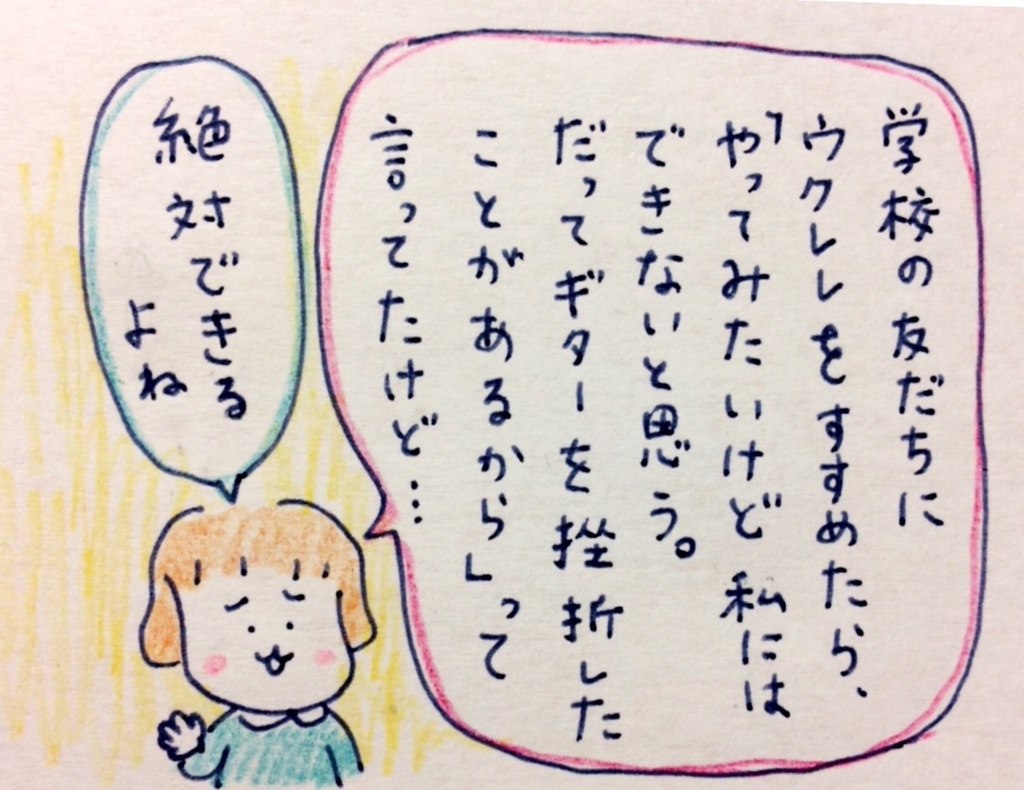 学校の友だちに
ウクレレをすすめたら、
「やってみたいけど 私には
できないと思う。
だってギターを挫折した
ことがあるから」って
言ってたけど…
絶対できる
よね